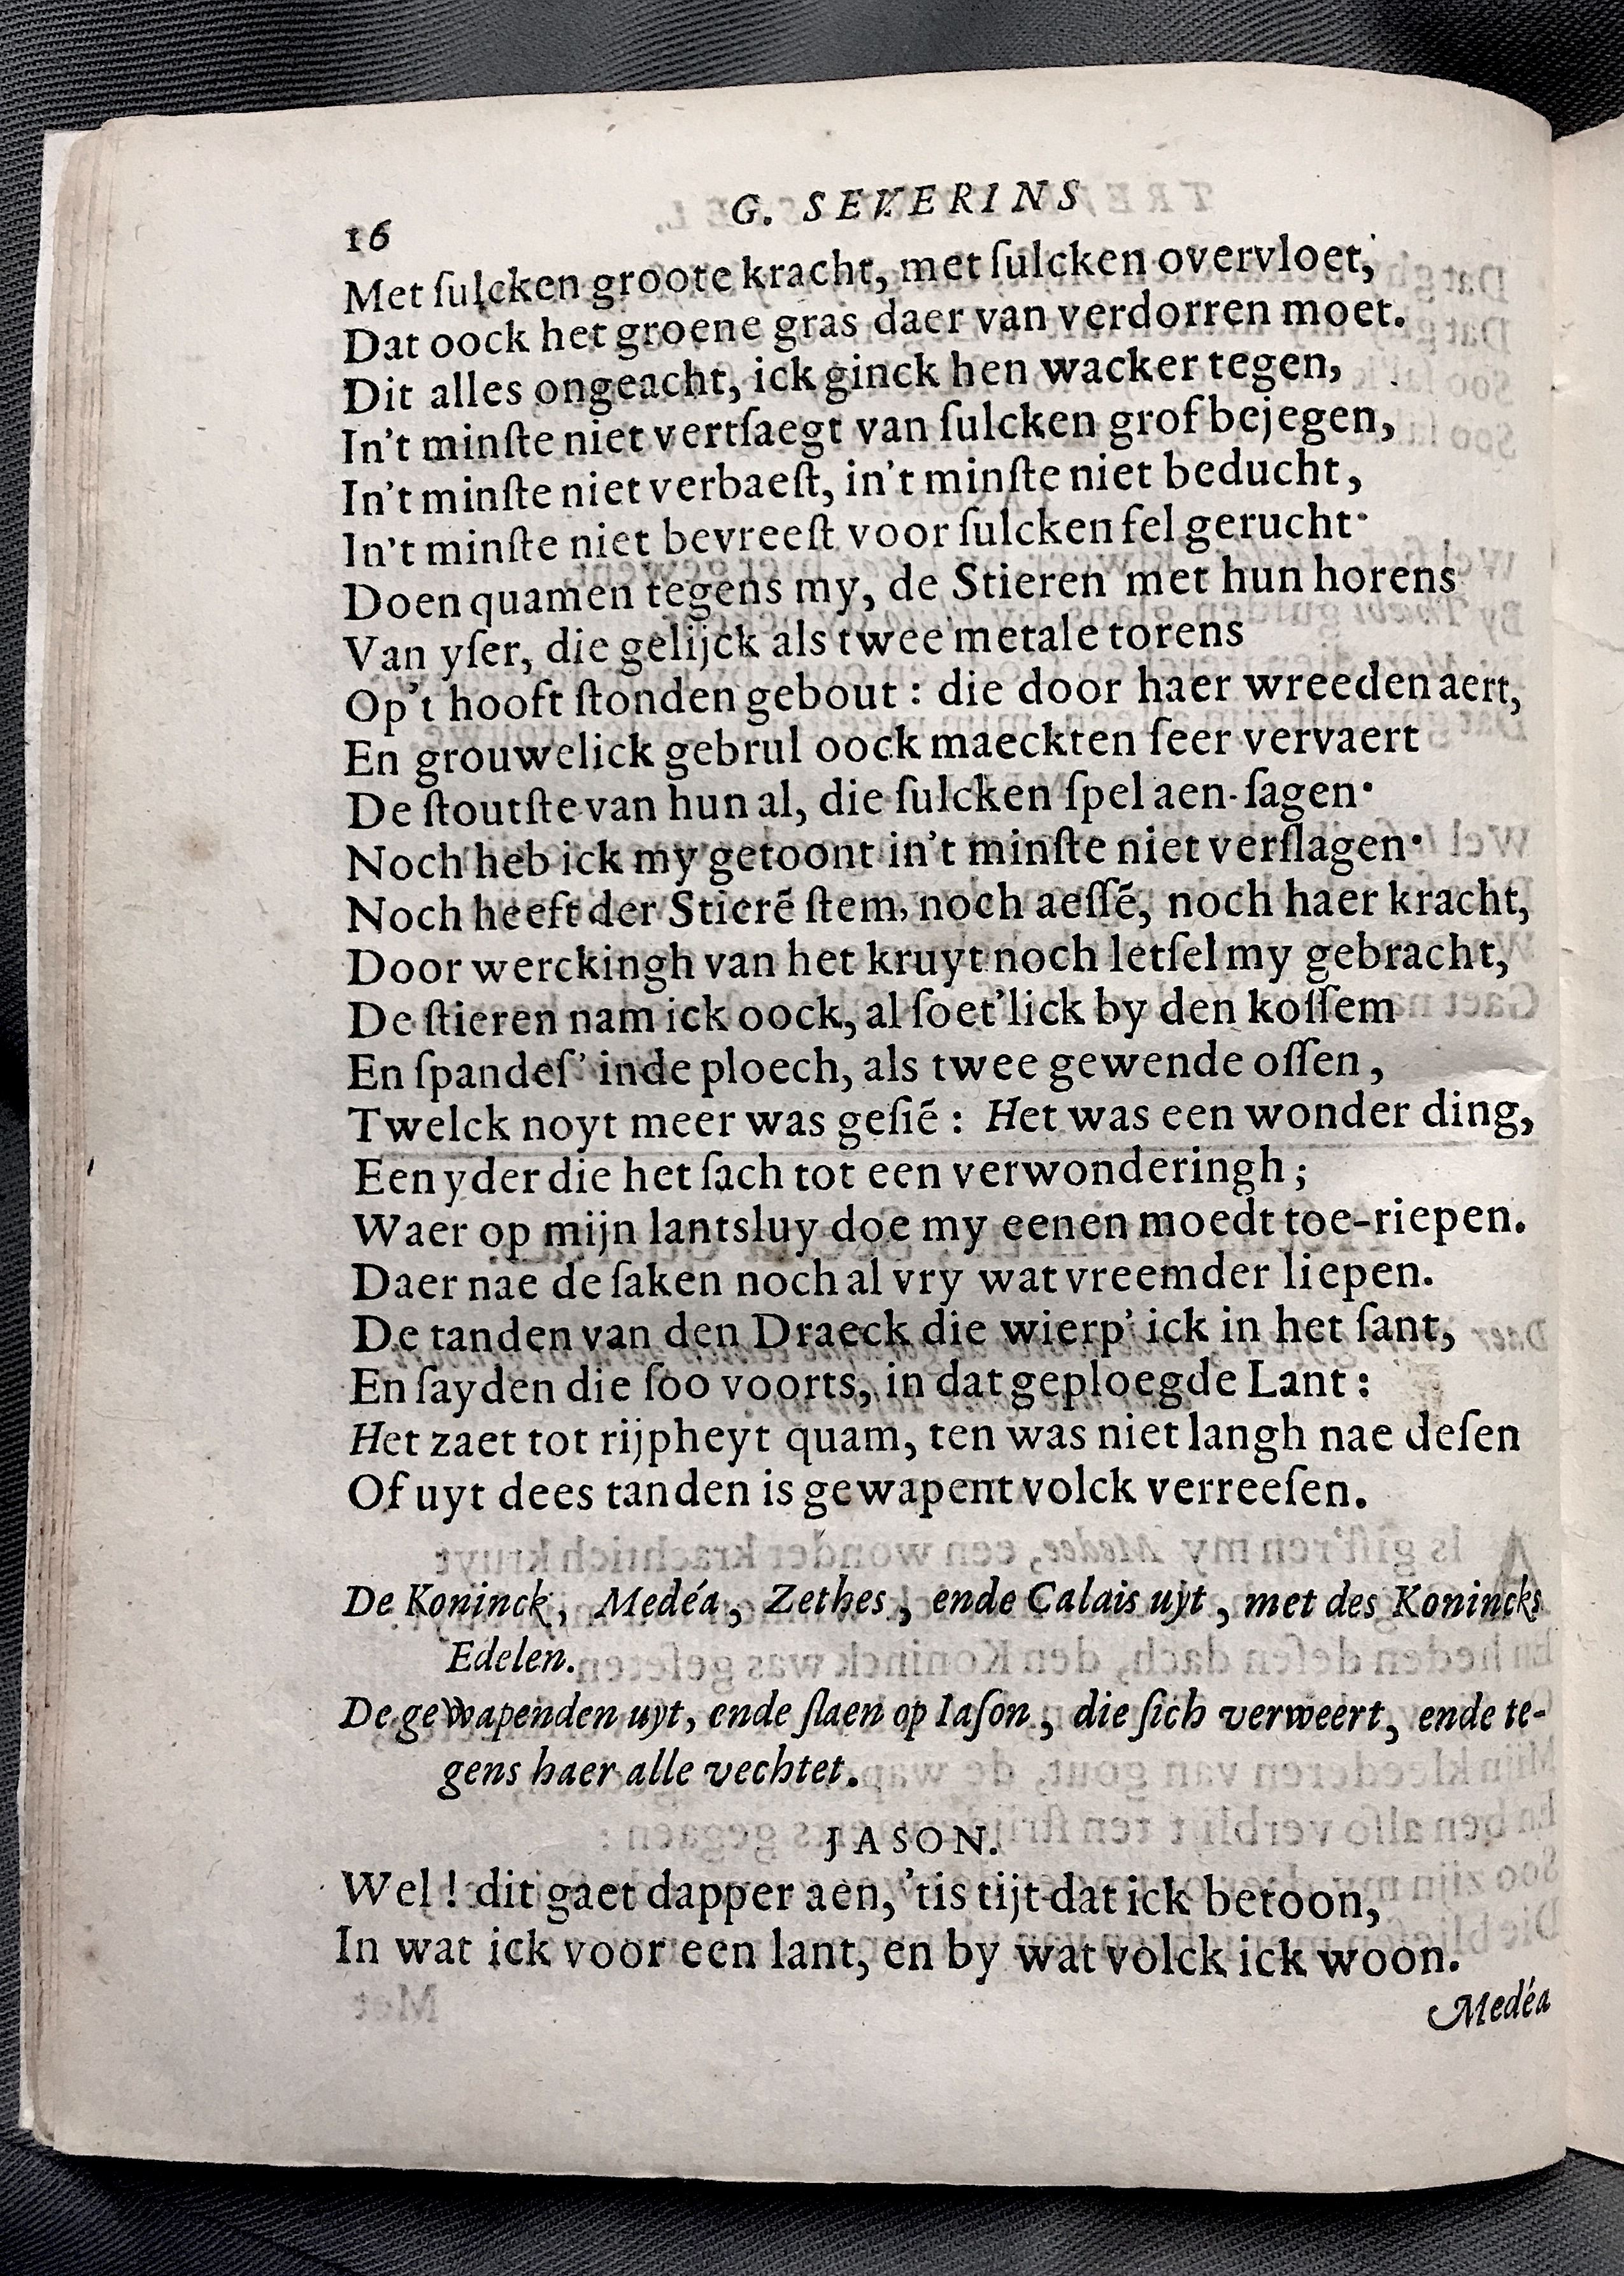 G. SEVERINS
16
Met ſulcken groote kracht, met ſulcken overvloet,
Dat oock het groene gras daer van verdorren moet.
Dit alles ongeacht, ick ginck hen wacker tegen,
In't minſte niet vertſaegt van ſulcken grof bejegen,
In't minſte niet verbaeſt, in't minſte niet beducht,
In't minſte niet bevreeſt voor ſulcken fel gerucht·
Doen quamen tegens my, de Stieren met hun horens
Van yſer, die gelijck als twee metale torens
Op't hooft ſtonden gebout : die door haer wreeden aert,
En grouwelick gebrul oock maeckten ſeer vervaert
De ſtoutſte van hun al, die ſulcken ſpel aen-ſagen·
Noch heb ick my getoont in't minſte niet verſlagen·
Noch heeft der Stierẽ ſtem, noch aeſſẽ, noch haer kracht,
Door werckingh van het kruyt noch letſel my gebracht,
De ſtieren nam ick oock, al ſoet'lick by den koſſem
En ſpandeſ' inde ploech, als twee gewende oſſen,
Twelck noyt meer was geſiẽ : Het was een wonder ding,
Een yder die het ſach tot een verwonderingh ;
Waer op mijn lantsluy doe my eenen moedt toe-riepen.
Daer nae de ſaken noch al vry wat vreemder liepen.
De tanden van den Draeck die wierp' ick in het ſant,
En ſayden die ſoo voorts, in dat geploegde Lant :
Het zaet tot rijpheyt quam, ten was niet langh nae deſen
Of uyt dees tanden is gewapent volck verreeſen.
De Koninck, Medéa, Zethes, ende Calais uyt, met des Konincks
Edelen.
De gewapenden uyt, ende ſlaen op Iaſon, die ſich verweert, ende te-
gens haer alle vechtet.
JASON.
Wel ! dit gaet dapper aen, 'tis tijt dat ick betoon,
In wat ick voor een lant, en by wat volck ick woon.
Medéa